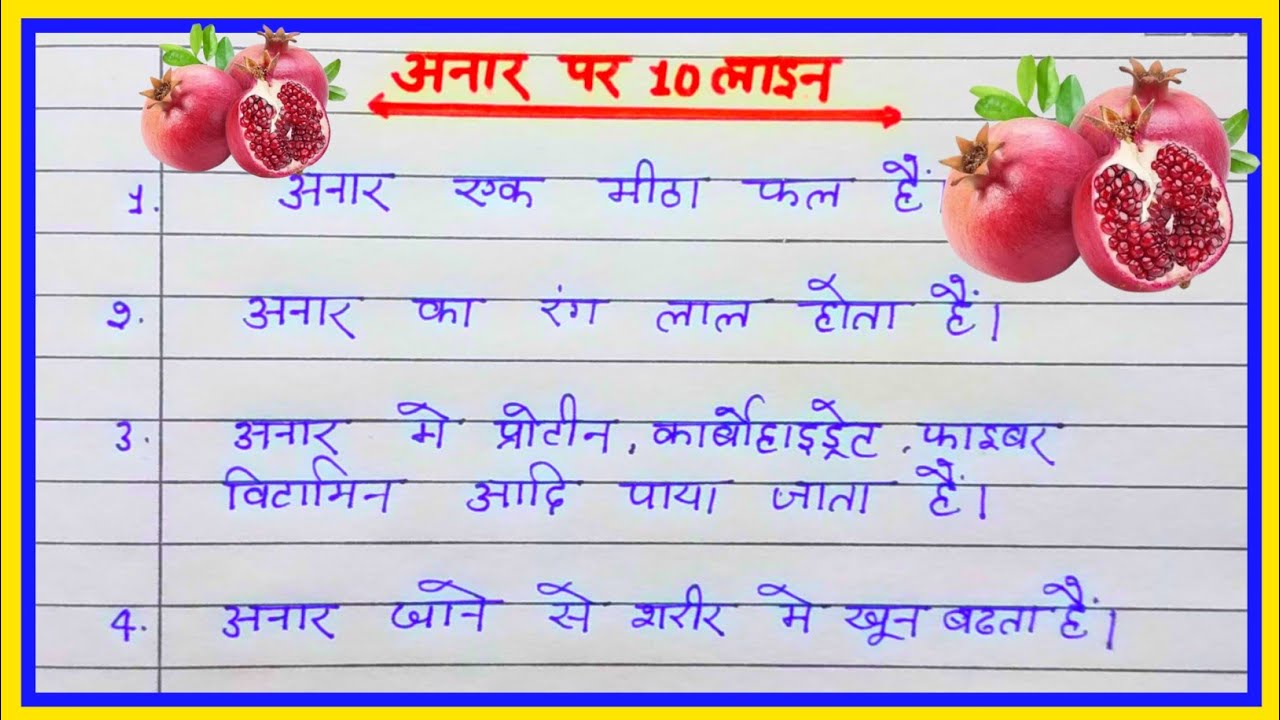 अनार पर 10 लाइन
1. अनार एक मीठा फल हैं।
२. अनार का रंग लाल होता हैं।
3. अनार मे प्रोटीन, कार्बोहाइड्रेट, फाइबर
विटामिन आदि पाया जाता हैं।
4. अनार खाने से शरीर मे खून बढता हैं।